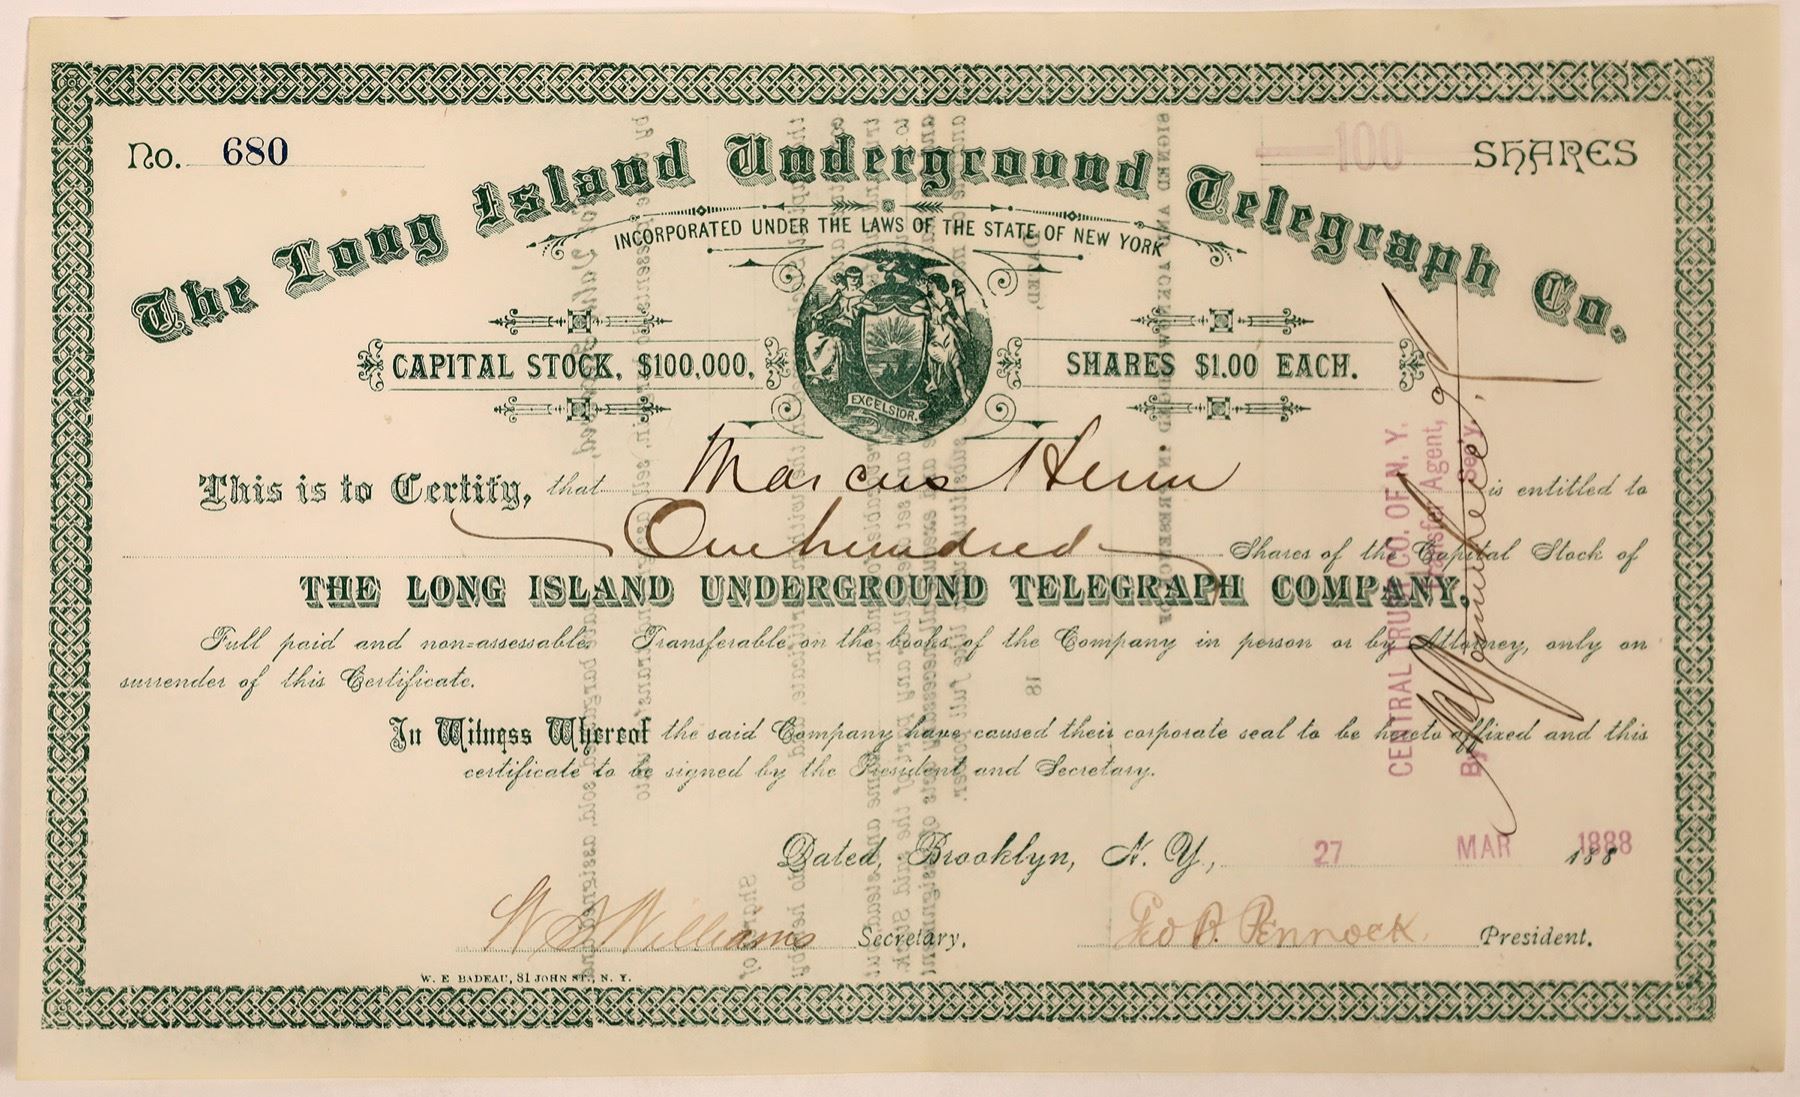 No. 680
100 SHARES
The Long Island Underground Telegraph Co.
INCORPORATED UNDER THE LAWS OF THE STATE OF NEW YORK
CAPITAL STOCK, $100,000,
SHARES $1.00 EACH.
EXCELSIOR.
This is to Certify, that Marcus is entitled to
One hundred Shares of the Capital Stock of
THE LONG ISLAND UNDERGROUND TELEGRAPH COMPANY.
Full paid and non-assessable Transferable on the books of the Company in person or by Attorney, only on
surrender of this Certificate.
In Witness Whereof the said Company have caused their corporate seal to be hereto affixed and this
certificate to be signed by the President and Secretary.
Dated, Brooklyn, N. Y., 27 MAR 1888
W S Williams Secretary.
Geo B. Pennock President.
W. E BADEAU, 81 JOHN ST., N. Y.
CENTRAL TRUST CO. OF N. Y.
Transfer Agent,
By Sec'y.